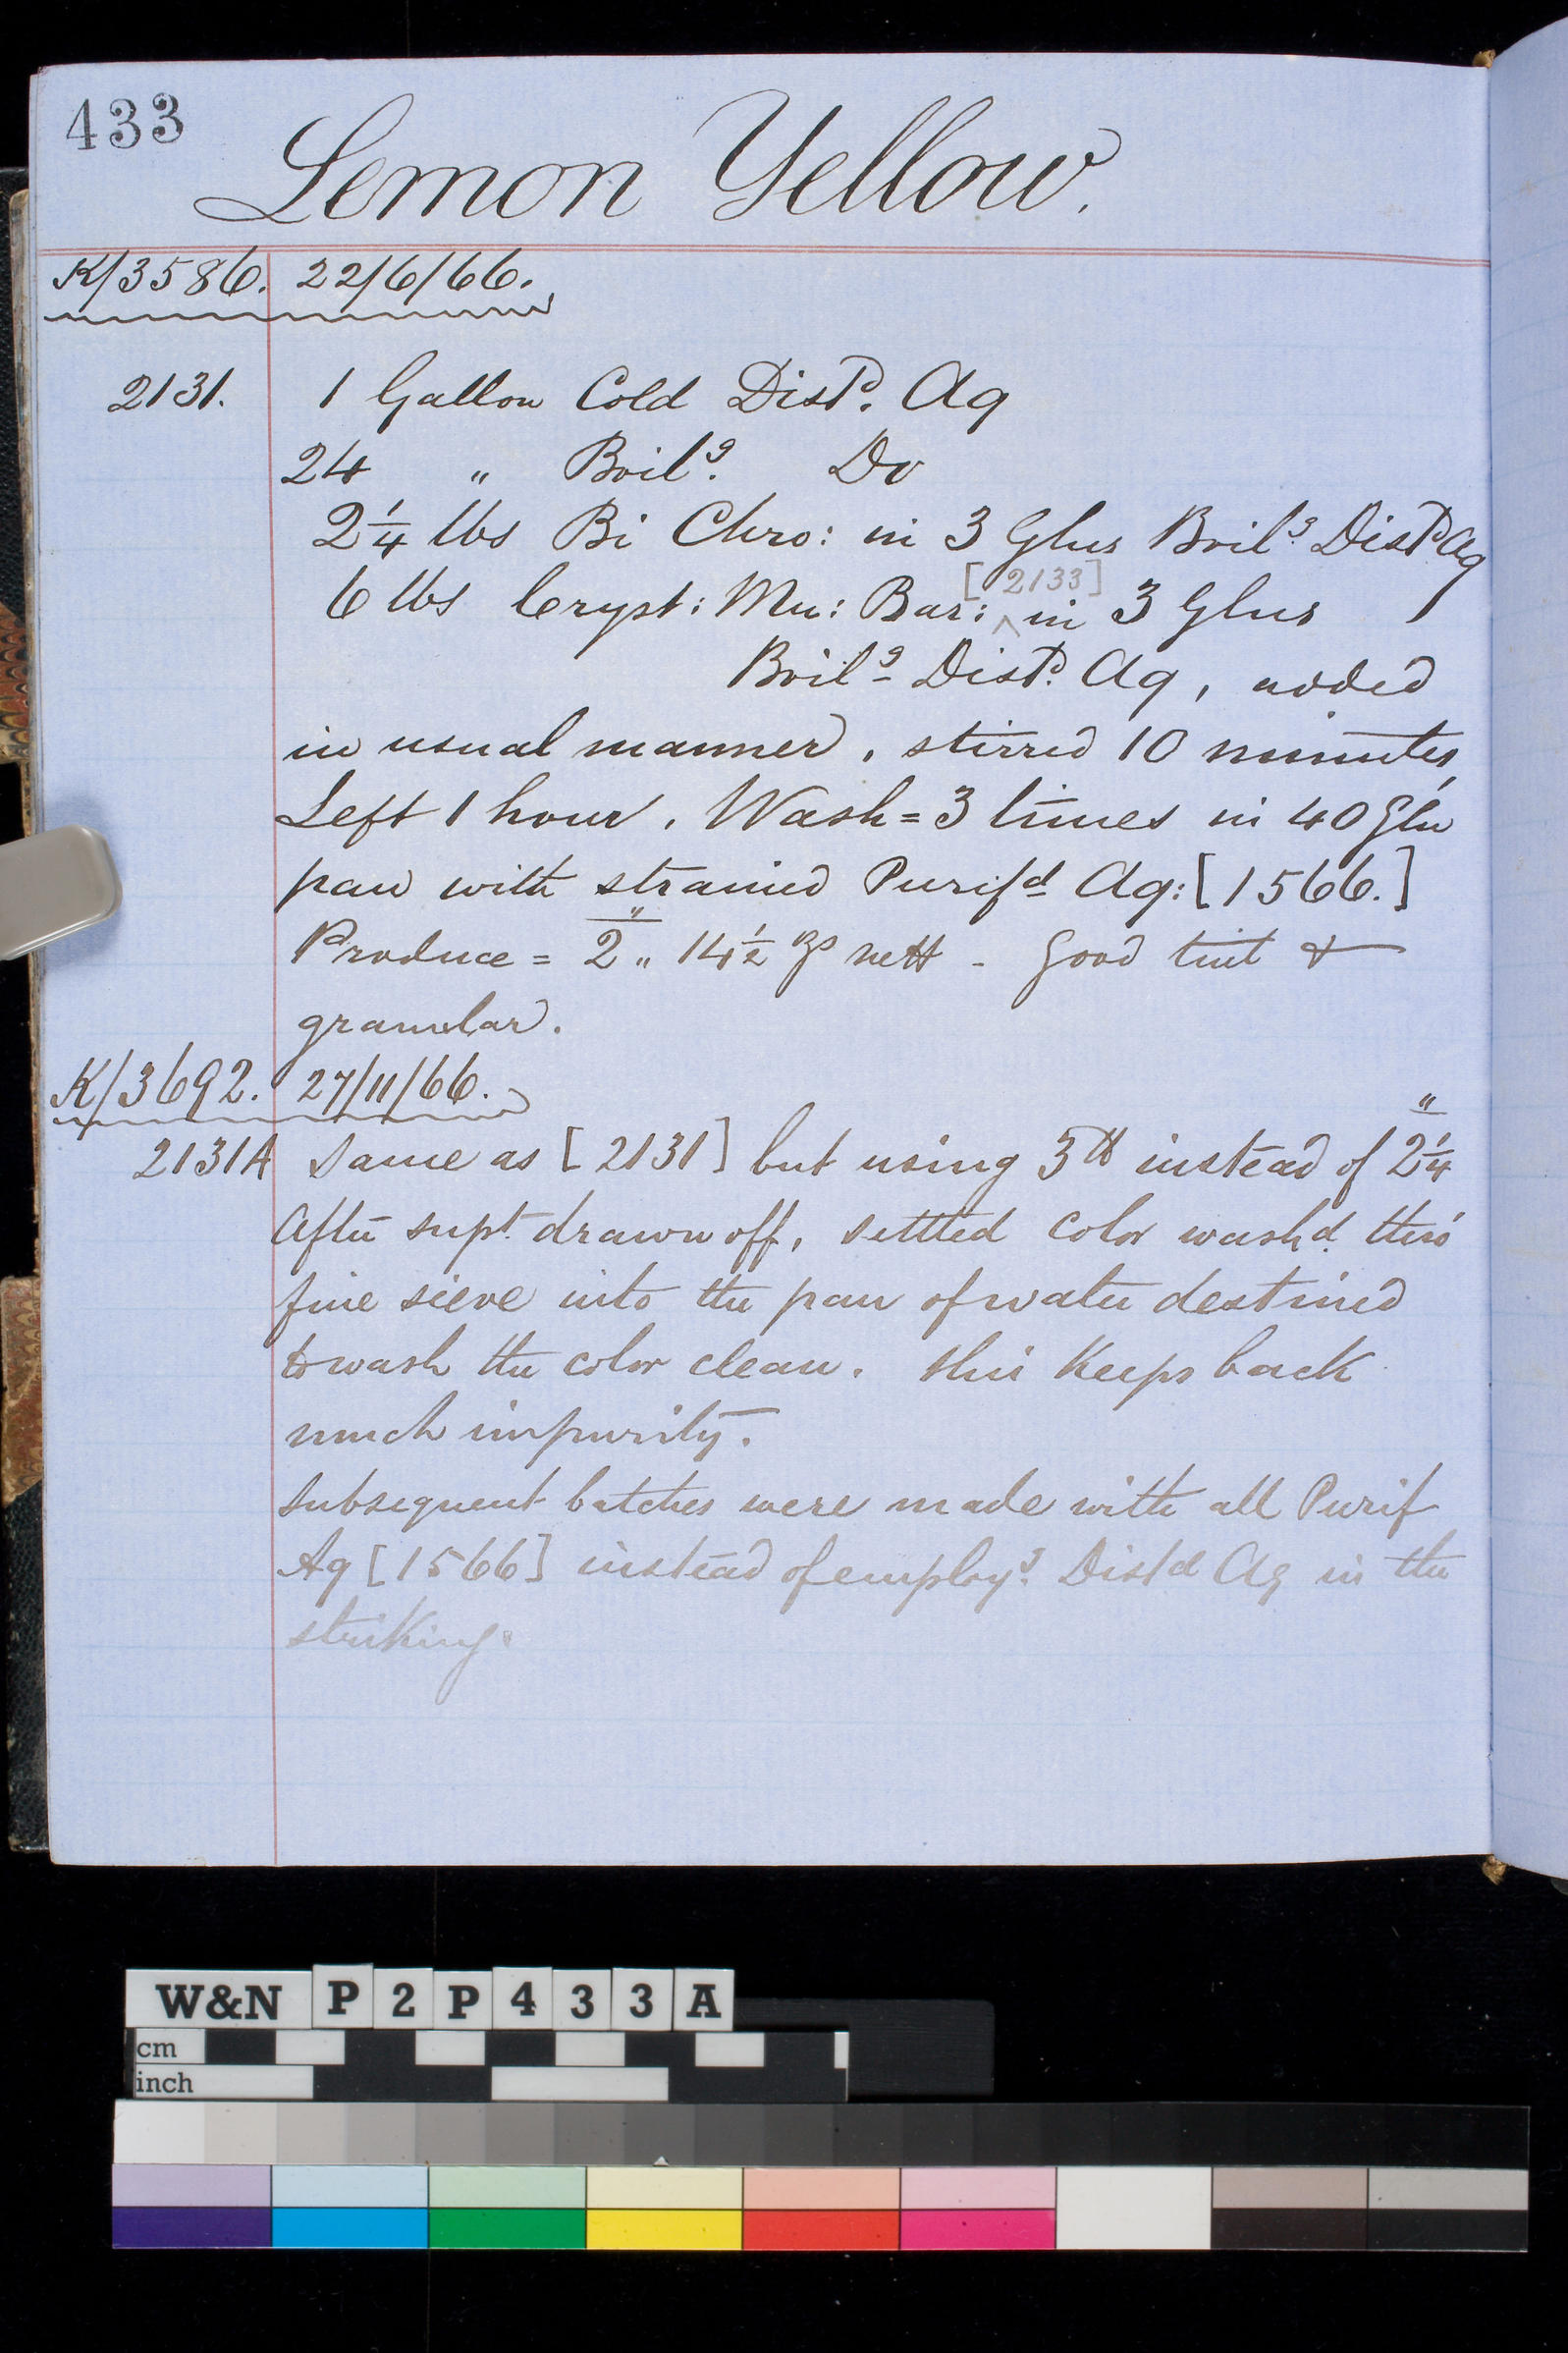 433
Lemon Yellow.
K/3586. 22/6/66.
2131. 1 Gallon Cold Distd. Aq
24 " Boilg. Do
2¼ lbs Bi Chro: in 3 Glns Boilg. Distd Aq
[2133]
6 lbs Cryst: Mu: Bar: ^ in 3 Glns
Boilg Distd. Aq, added
in usual manner, stirred 10 minutes,
Left 1 hour. Wash = 3 times in 40 Gln
pan with strained Purifd Aq: [1566.]
Produce = 2 " 14½ ozs nett - Good tint &
granular.
K/3692. 27/11/66.
2131A Same as [2131] but using 3 lb instead of 2¼
After supt. drawn off, settled color washd. thro'
fine sieve into the pan of water destined
to wash the color clean. this Keeps back
much impurity.
Subsequent batches were made with all Purif
Aq [1566] instead of employg. Distd Aq in the
striKing.
W&N P2P433A
cm
inch